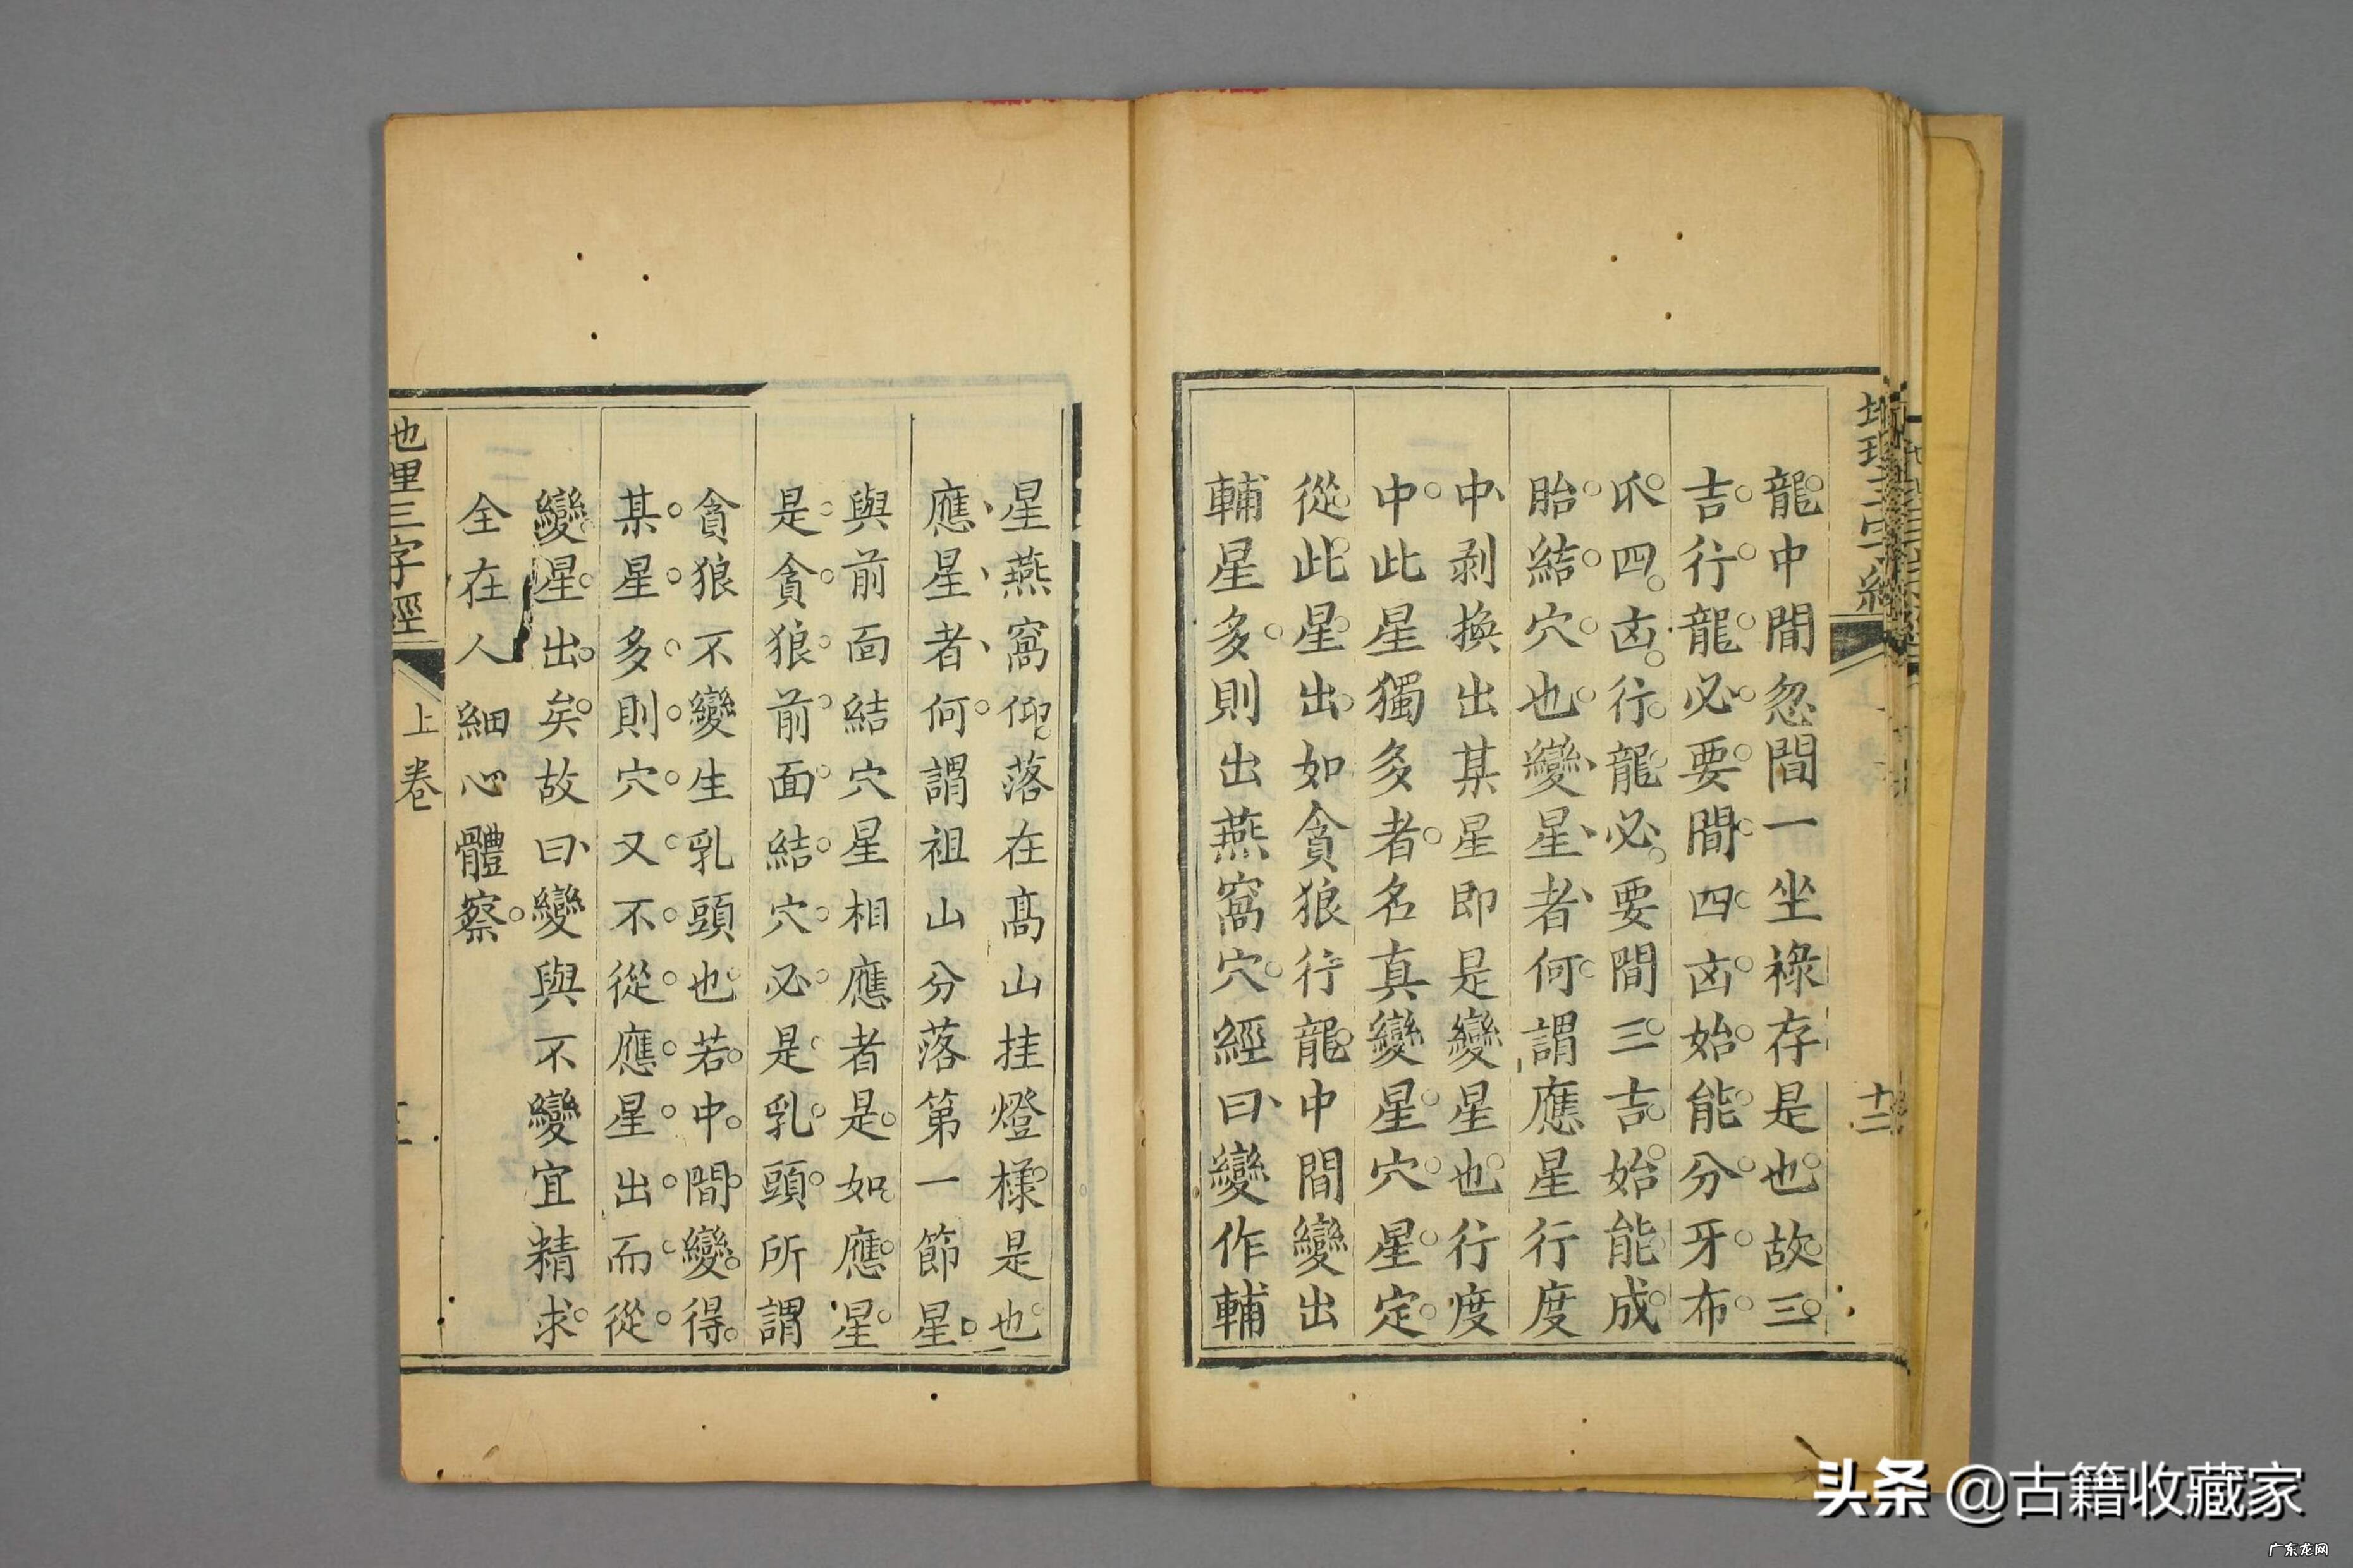 地理三字經
十二
龍中間忽間一坐祿存是也故三
吉行龍必要間四凶始能分牙布
爪四凶行龍必要間三吉始能成
胎結穴也變星者何謂應星行度
中剥換出某星即是變星也行度
中此星獨多者名真變星穴星定
從此星出如貪狼行龍中間變出
輔星多則出燕窩穴經曰變作輔
星燕窩仰落在高山挂燈樣是也
應星者何謂祖山分落第一節星
與前面結穴星相應者是如應星
是貪狼前面結穴必是乳頭所謂
貪狼不變生乳頭也若中間變得
某星多則穴又不從應星出而從
變星出矣故曰變與不變宜精求
全在人細心體察
地理三字經
上卷
头条 @古籍收藏家
广东龙网